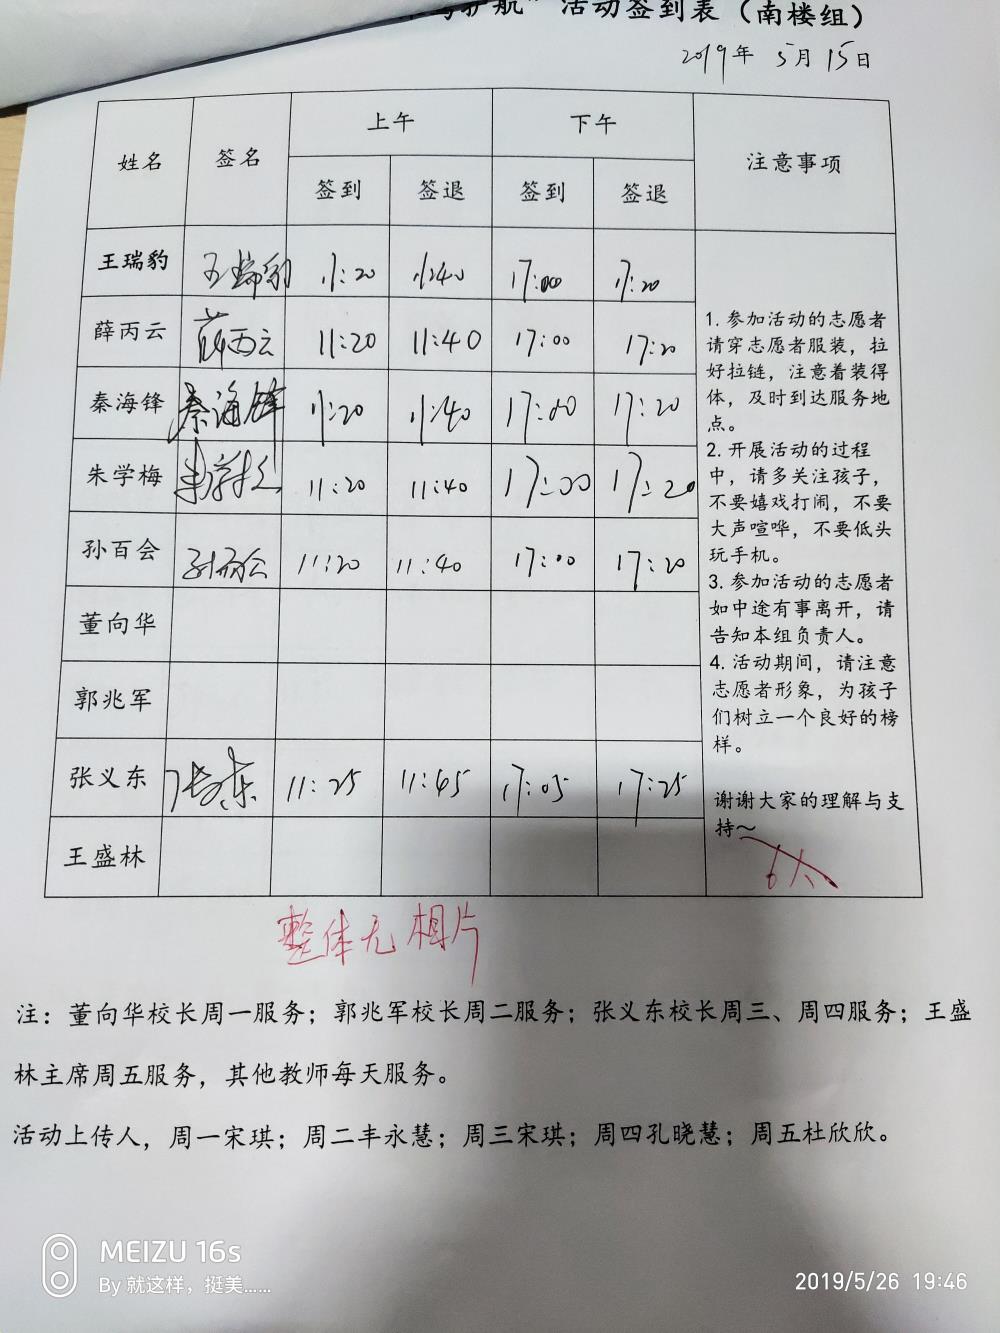 护航”活动签到表（南楼组）
2019年 5月 15日
姓名 签名 上午 下午 注意事项
签到 签退 签到 签退
王瑞豹 王瑞豹 11:20 11:40 17:00 17:20
薛丙云 薛丙云 11:20 11:40 17:00 17:20
秦海锋 秦海锋 11:20 11:40 17:00 17:20
朱学梅 朱学梅 11:20 11:40 17:00 17:20
孙百会 孙百会 11:20 11:40 17:00 17:20
董向华
郭兆军
张义东 张义东 11:25 11:45 17:05 17:25
王盛林
1. 参加活动的志愿者
请穿志愿者服装，拉
好拉链，注意着装得
体，及时到达服务地
点。
2. 开展活动的过程
中，请多关注孩子，
不要嬉戏打闹，不要
大声喧哗，不要低头
玩手机。
3. 参加活动的志愿者
如中途有事离开，请
告知本组负责人。
4. 活动期间，请注意
志愿者形象，为孩子
们树立一个良好的榜
样。
谢谢大家的理解与支
持～
6人
整体无相片
注：董向华校长周一服务；郭兆军校长周二服务；张义东校长周三、周四服务；王盛
林主席周五服务，其他教师每天服务。
活动上传人，周一宋琪；周二丰永慧；周三宋琪；周四孔晓慧；周五杜欣欣。
MEIZU 16s
By 就这样，挺美......
2019/5/26 19:46